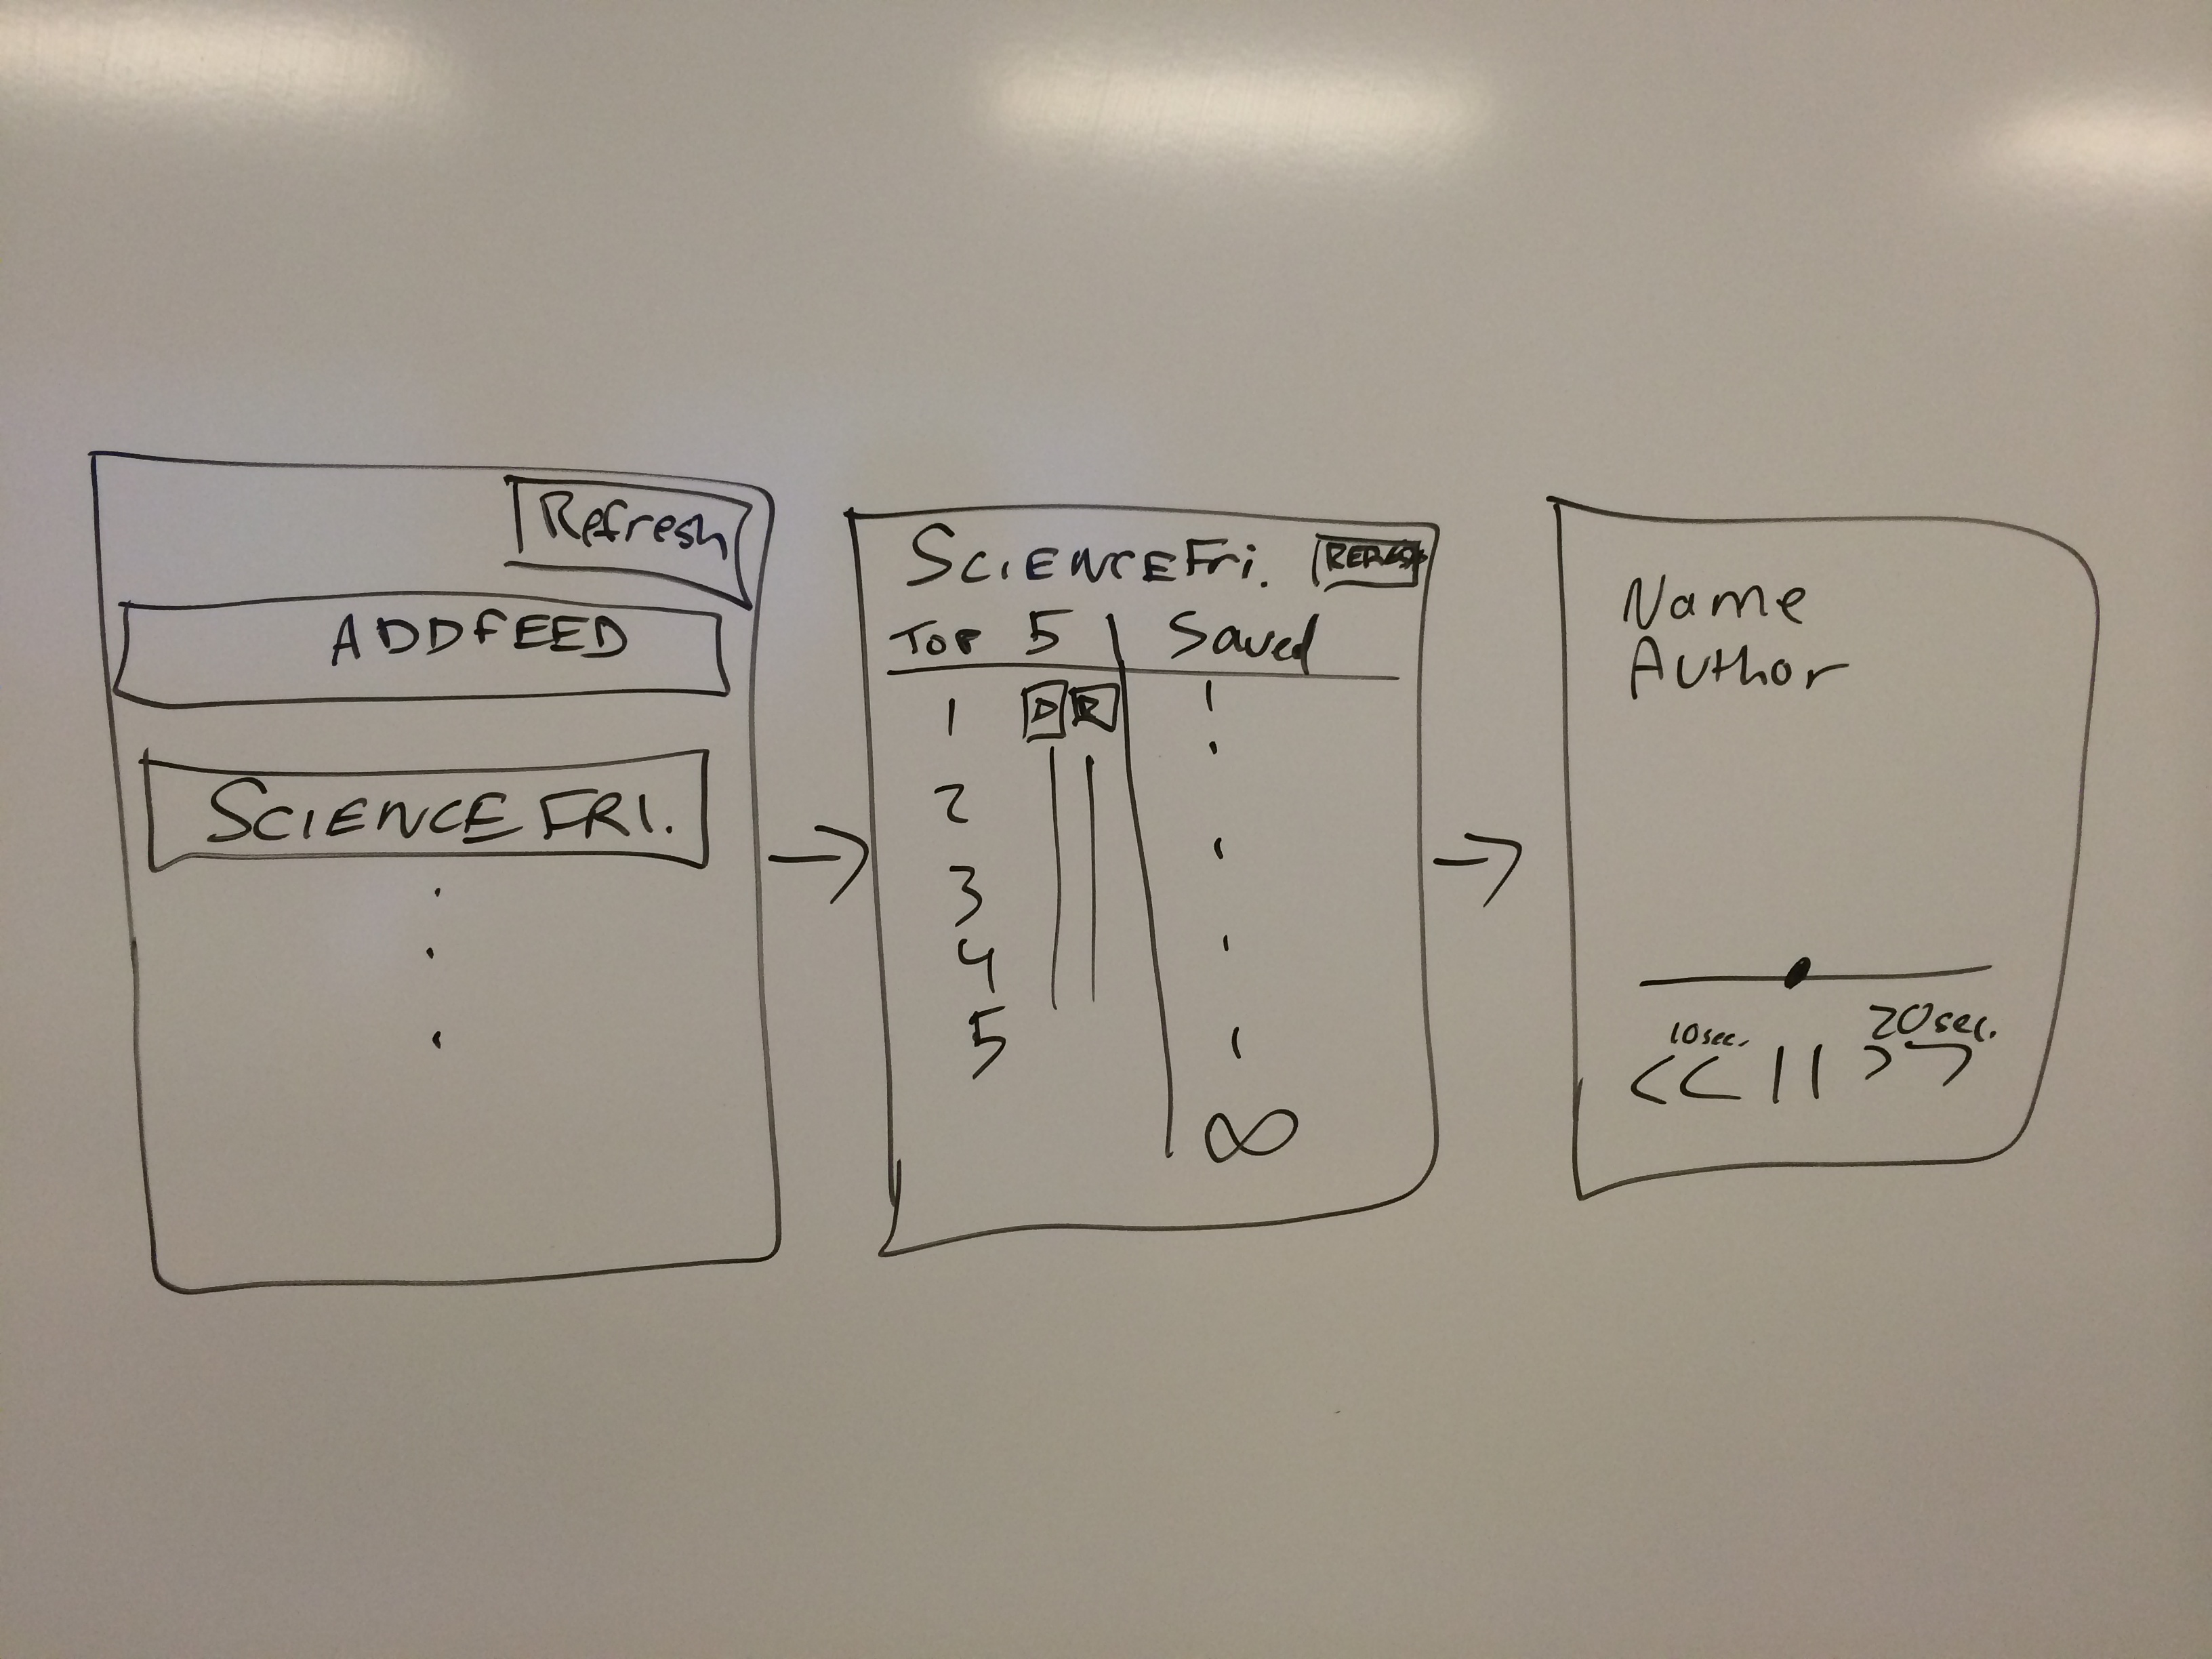 Refresh
ADD FEED
SCIENCE FRI.
SCIENCE Fri.
TOP 5 | Saved
1 D R 1
2
3
4
5
∞
Name
Author
10sec. 20sec.
<< || >>